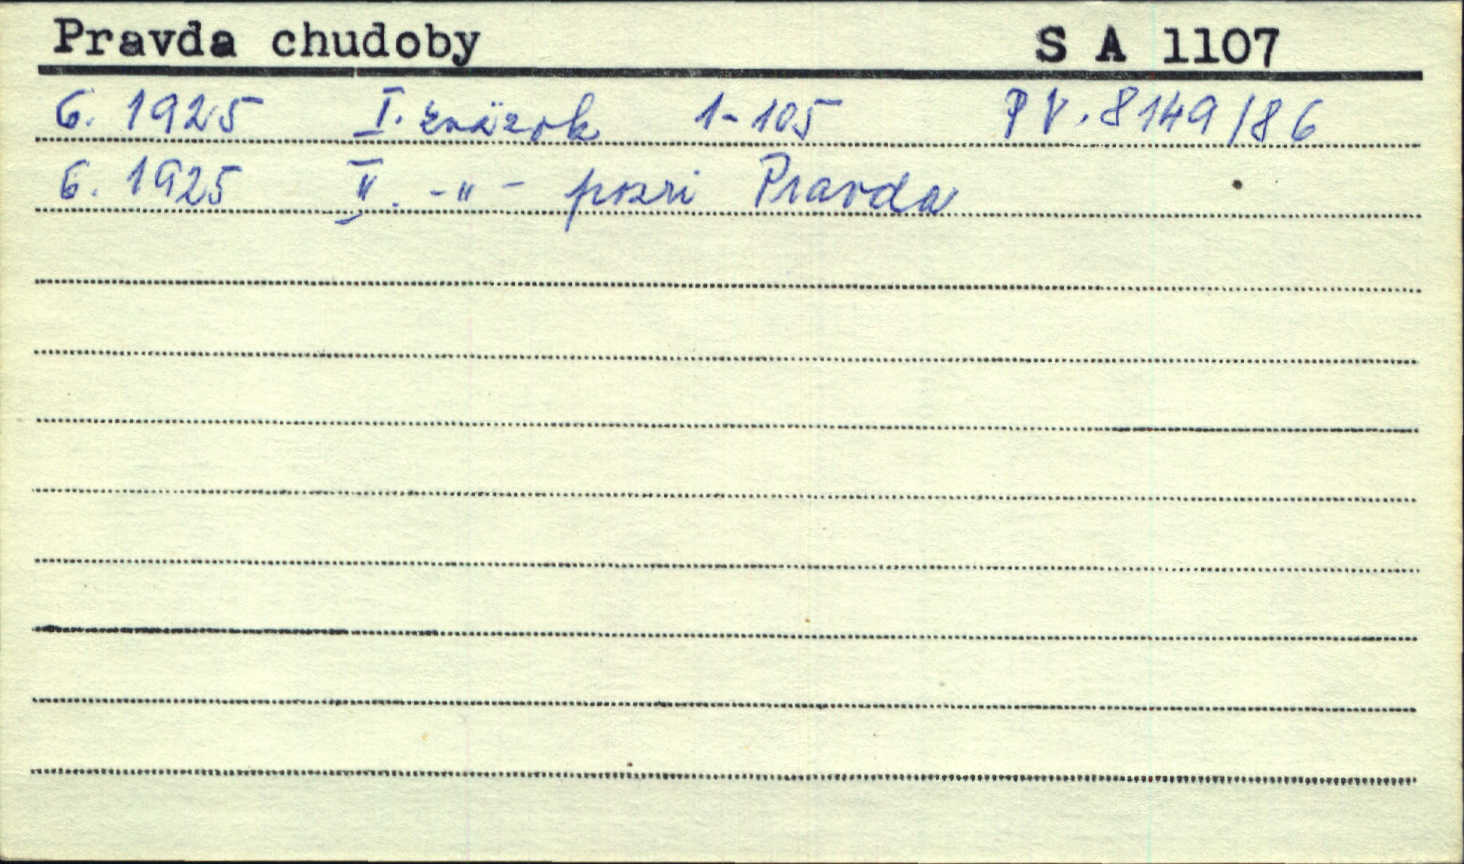 Pravda chudoby S A 1107
6. 1925 I. zväzok 1-105 PV. 8149/86
6. 1925 II. -"- pozri Pravda